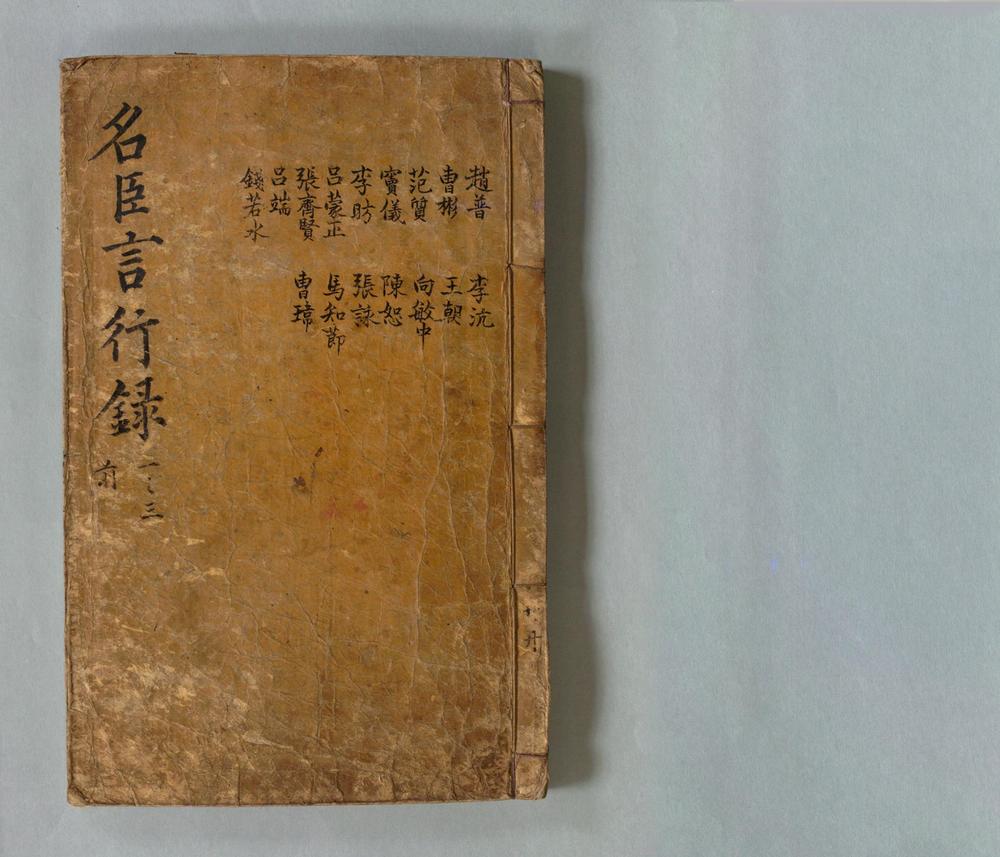 趙普
曹彬
范質
竇儀
李昉
呂蒙正
張齊賢
呂端
錢若水
李沆
王朝
向敏中
陳恕
張詠
馬知節
曹瑋
名臣言行録
一之三
前